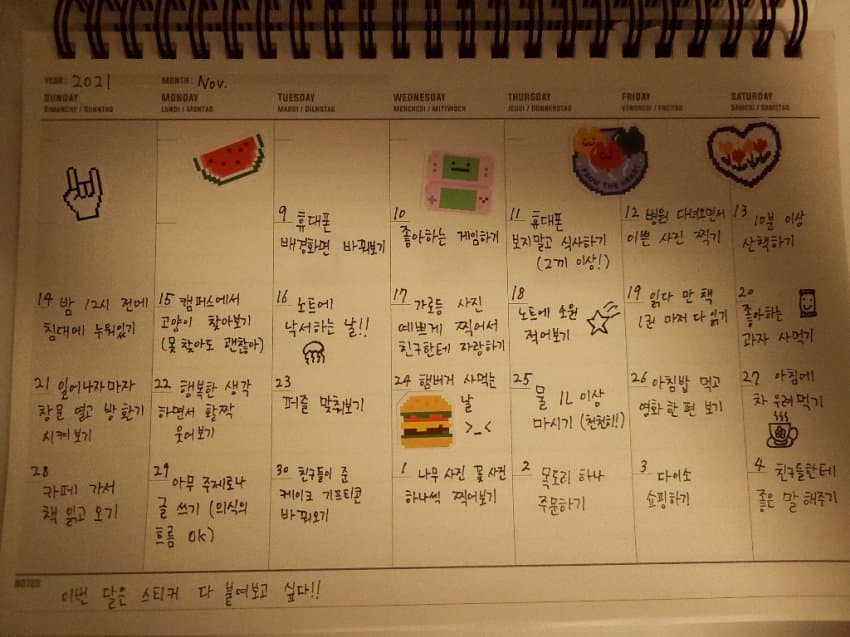 YEAR: 2021 MONTH: Nov.
SUNDAY MONDAY TUESDAY WEDNESDAY THURSDAY FRIDAY SATURDAY
DIMANCHE / SONNTAG LUNDI / MONTAG MARDI / DIENSTAG MERCREDI / MITTWOCH JEUDI / DONNERSTAG VENDREDI / FREITAG SAMEDI / SAMSTAG
FROM THE HEART
9 휴대폰
배경화면 바꿔보기
10
좋아하는 게임하기
11 휴대폰
보지말고 식사하기
(2끼 이상!)
12 병원 다녀오면서
이쁜 사진 찍기
13 10분 이상
산책하기
14 밤 12시 전에
침대에 누워있기
15 캠퍼스에서
고양이 찾아보기
(못 찾아도 괜찮아)
16 노트에
낙서하는 날!!
17 가로등 사진
예쁘게 찍어서
친구한테 자랑하기
18
노트에 소원
적어보기
19 읽다 만 책
1권 마저 다 읽기
20
좋아하는
과자 사먹기
21 일어나자마자
창문 열고 방 환기
시켜보기
22 행복한 생각
하면서 활짝
웃어보기
23
퍼즐 맞춰보기
24 햄버거 사먹는
날
>_<
25
물 1L 이상
마시기 (천천히!)
26 아침밥 먹고
영화 한 편 보기
27 아침에
차 우려먹기
28
카페 가서
책 읽고 오기
29
아무 주제로나
글 쓰기 (의식의
흐름 OK)
30 친구들이 준
케이크 기프티콘
바꿔오기
1 나무 사진 꽃 사진
하나씩 찍어보기
2 목도리 하나
주문하기
3 다이소
쇼핑하기
4 친구들한테
좋은 말 해주기
NOTES
이번 달은 스티커 다 붙여보고 싶다!!